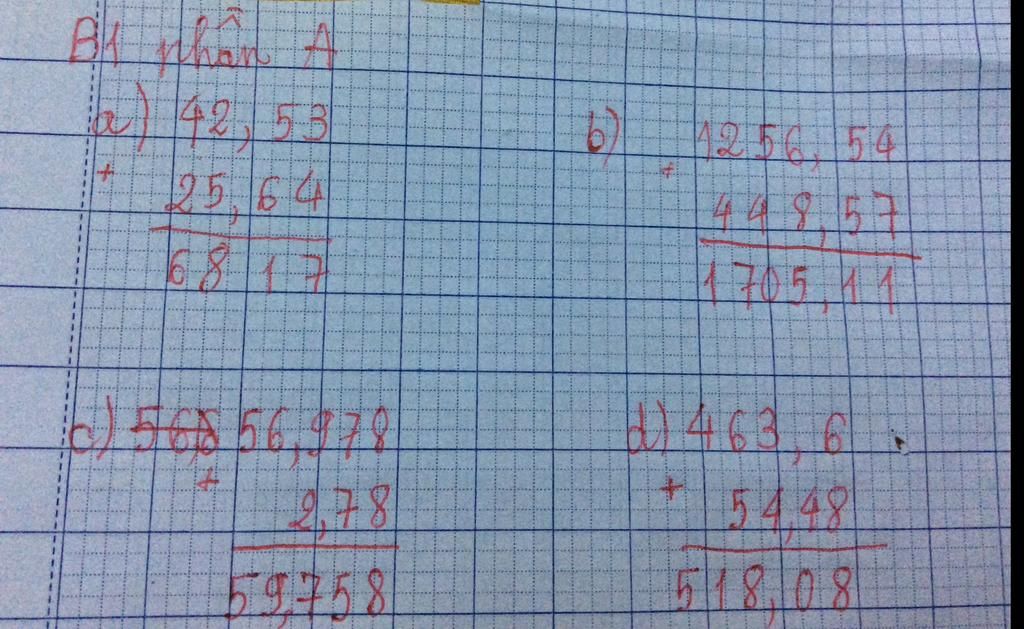 B1 phần A
a) 42,53
+
25,64
68 17
b) 1256,54
+
448,57
1705,11
c) 56,5 56,978
+
2,78
59,758
d) 463,6
+
54,48
518,08